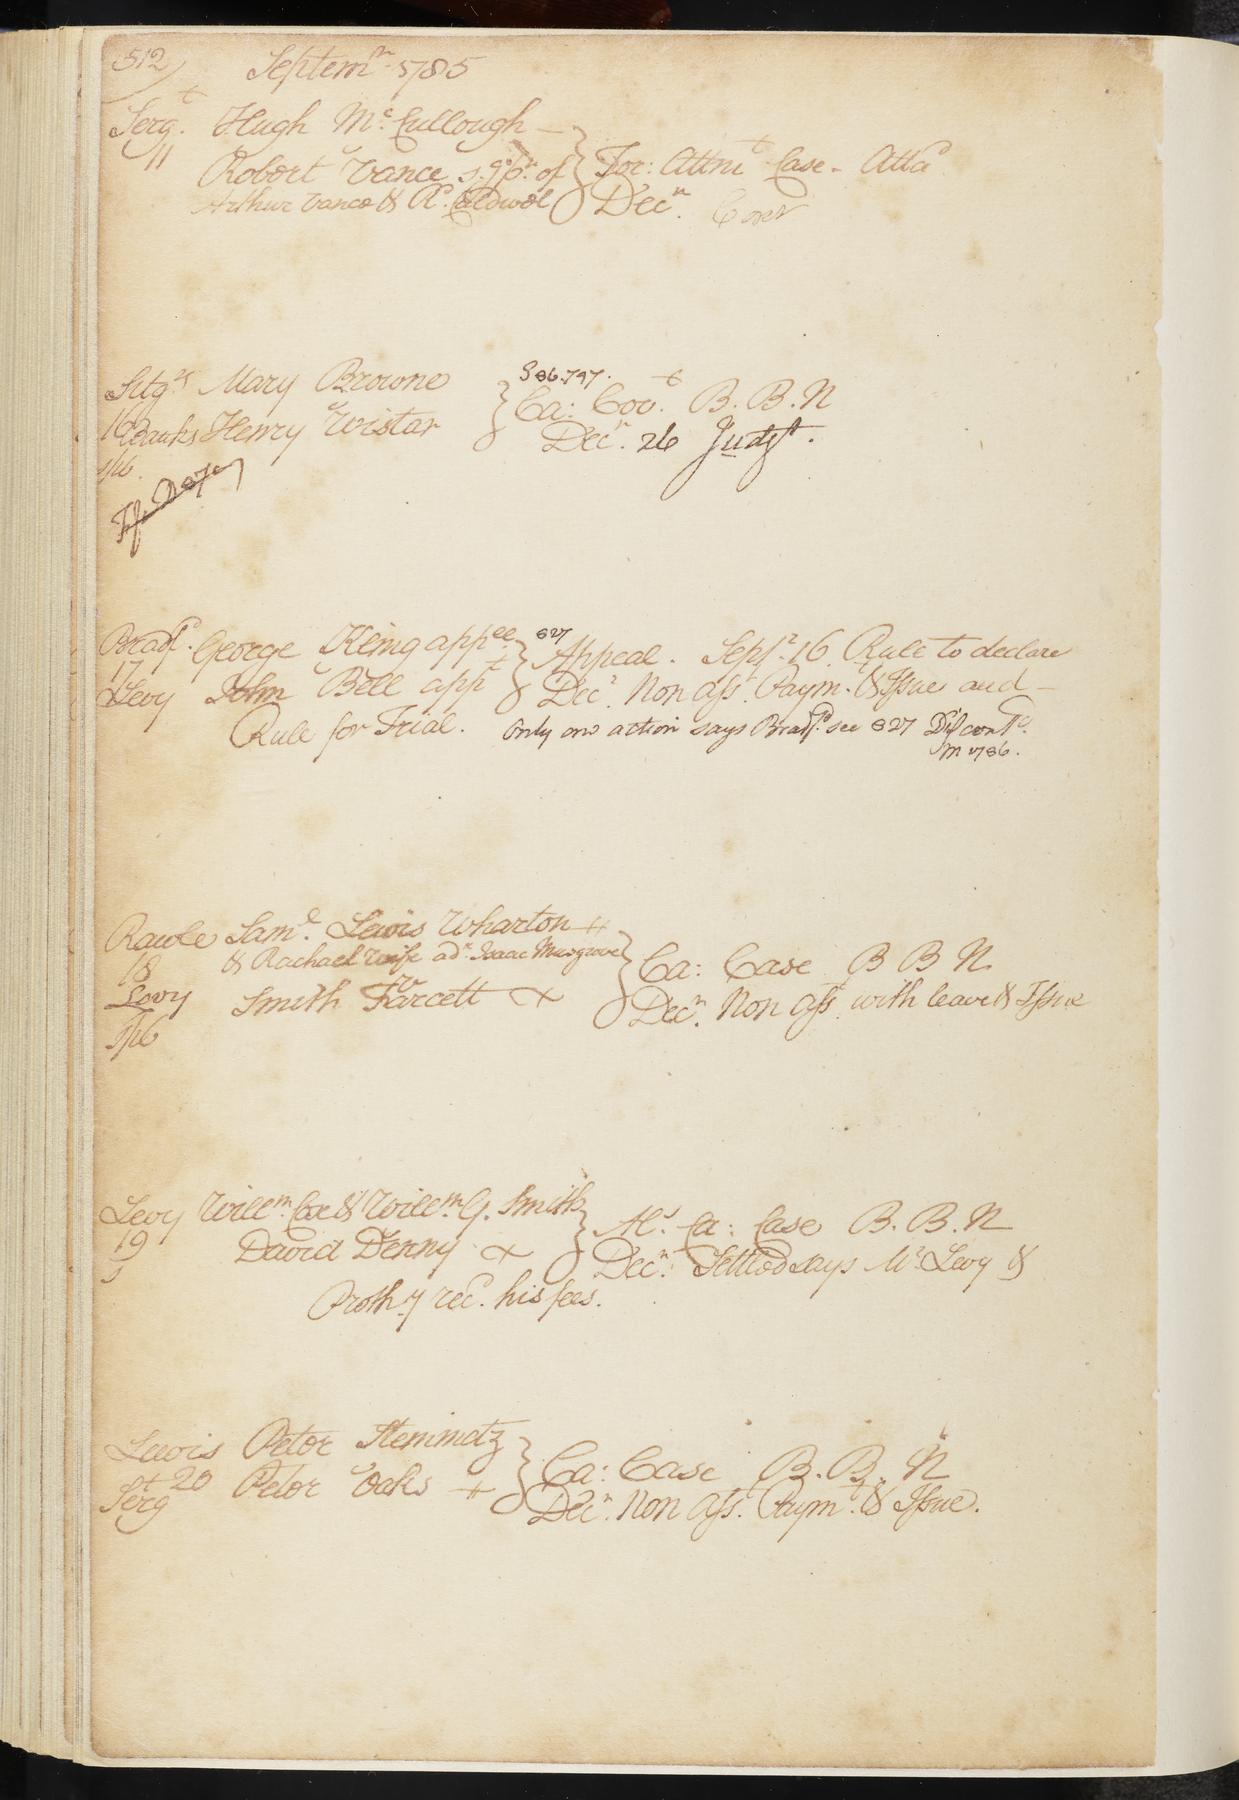 512) Septemr. 1785
Sergt. Hugh Mc. Cullough
11 Robert Vance s. gdn. of } For: Attmt Case - Attd
Arthur Vance & A. Caldwel Decn. Cont
S86.747.
Sitgs Mary Browne } Ca: Covt. B. B. N
16
Banks Henry Wistar Decn. 26 Judgt.
S/16.
Bradfd. George King appee 827 } Appeal. Sepr. 16 Rule to declare
17
Levy John Bell appt Decr. Non Ass. Paymt. & Issue and
Rule for Trial. Only one action says Bradfd. see 827 Discontd.
M 1786.
Rawle Saml. Lewis Wharton
18 & Rachael Wife adr. Isaac Musgrove } Ca: Case B B N
Levy Smith Farcett Decn. Non Ass. with leave & Issue
S/16
Levy Willm. Cox & Willm. G. Smith } Als. Ca: Case B. B. N
19 David Denny Decn. Settled says Mr. Levy &
S
Prothy recd. his fees.
Lewis Peter Stemmetz } Ca: Case B. B. N
20
Sergt Peter Oaks Decn. Non Ass. Paymt. & Issue.